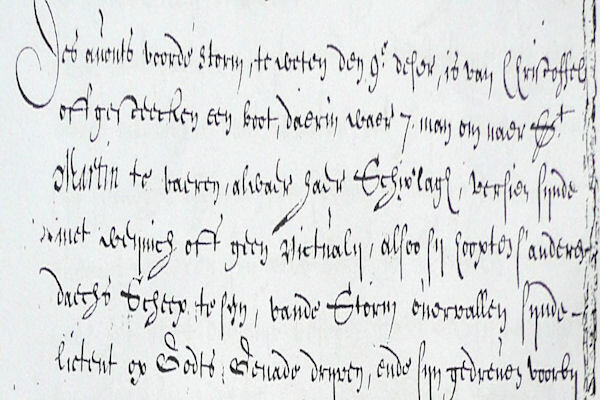 Des auonts voorde storm, te weten den 9e deser, is van Christoffel
offgesteecken een boot, daerin waer 7. man om naer St
Martin te vaeren, alwaer haer Schip lagh, versien sijnde
met weijnich oft geen victualij, alsoo sij hoopten s'anderen
daechs Scheep te sijn, vande Storm overvallen sijnde -
lietent op Godts Genade drijven, ende sijn gedreven voorbij